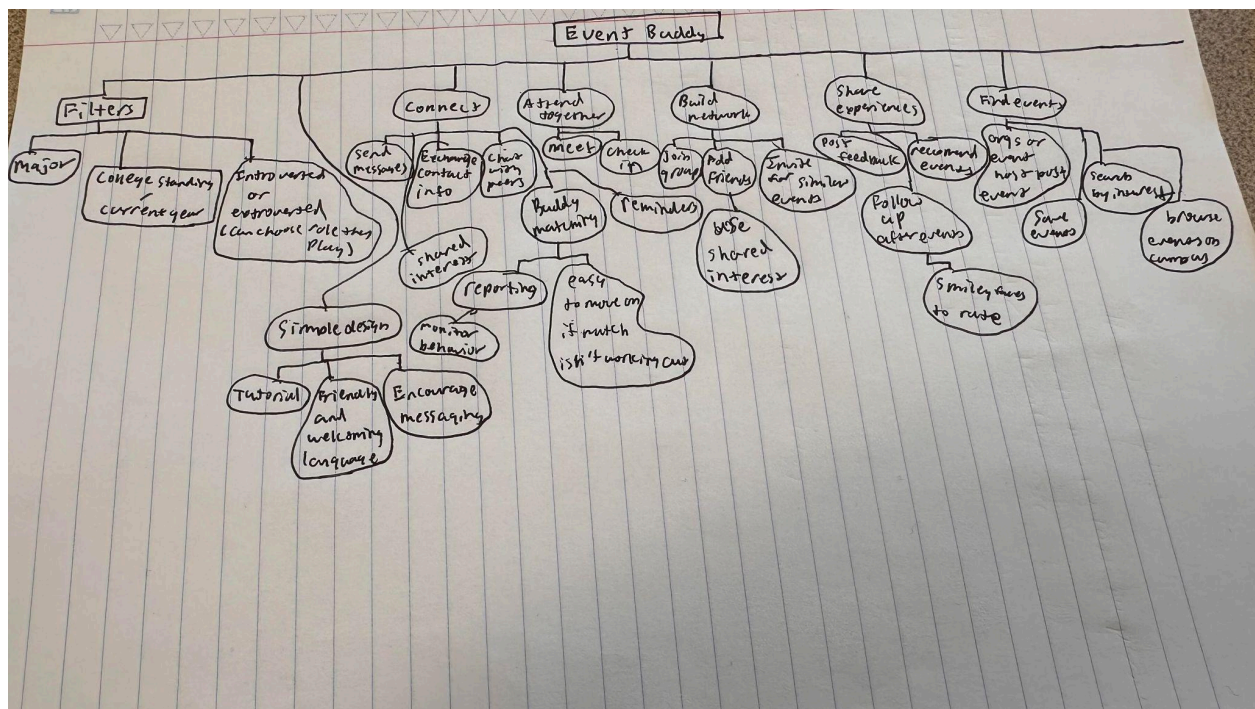 Event Buddy
Filters
major
College standing
/
current year
Introverted
or
extroverted
(can choose role they
play)
Simple design
Tutorial
Friendly
and
welcoming
language
Encourage
messaging
Connect
send
messages
Exchange
contact
info
Chat
with
peers
shared
interest
Buddy
matching
reminders
reporting
monitor
behavior
easy
to move on
if match
isn't working out
Attend
together
meet
check
in
Build
network
Join
group
Add
friends
Invite
for similar
events
base
shared
interest
Share
experiences
Post
feedback
recommend
events
Follow
up
after events
Smiley faces
to rate
Find events
orgs or
event
host post
event
Save
events
search
by interest
browse
events on
campus